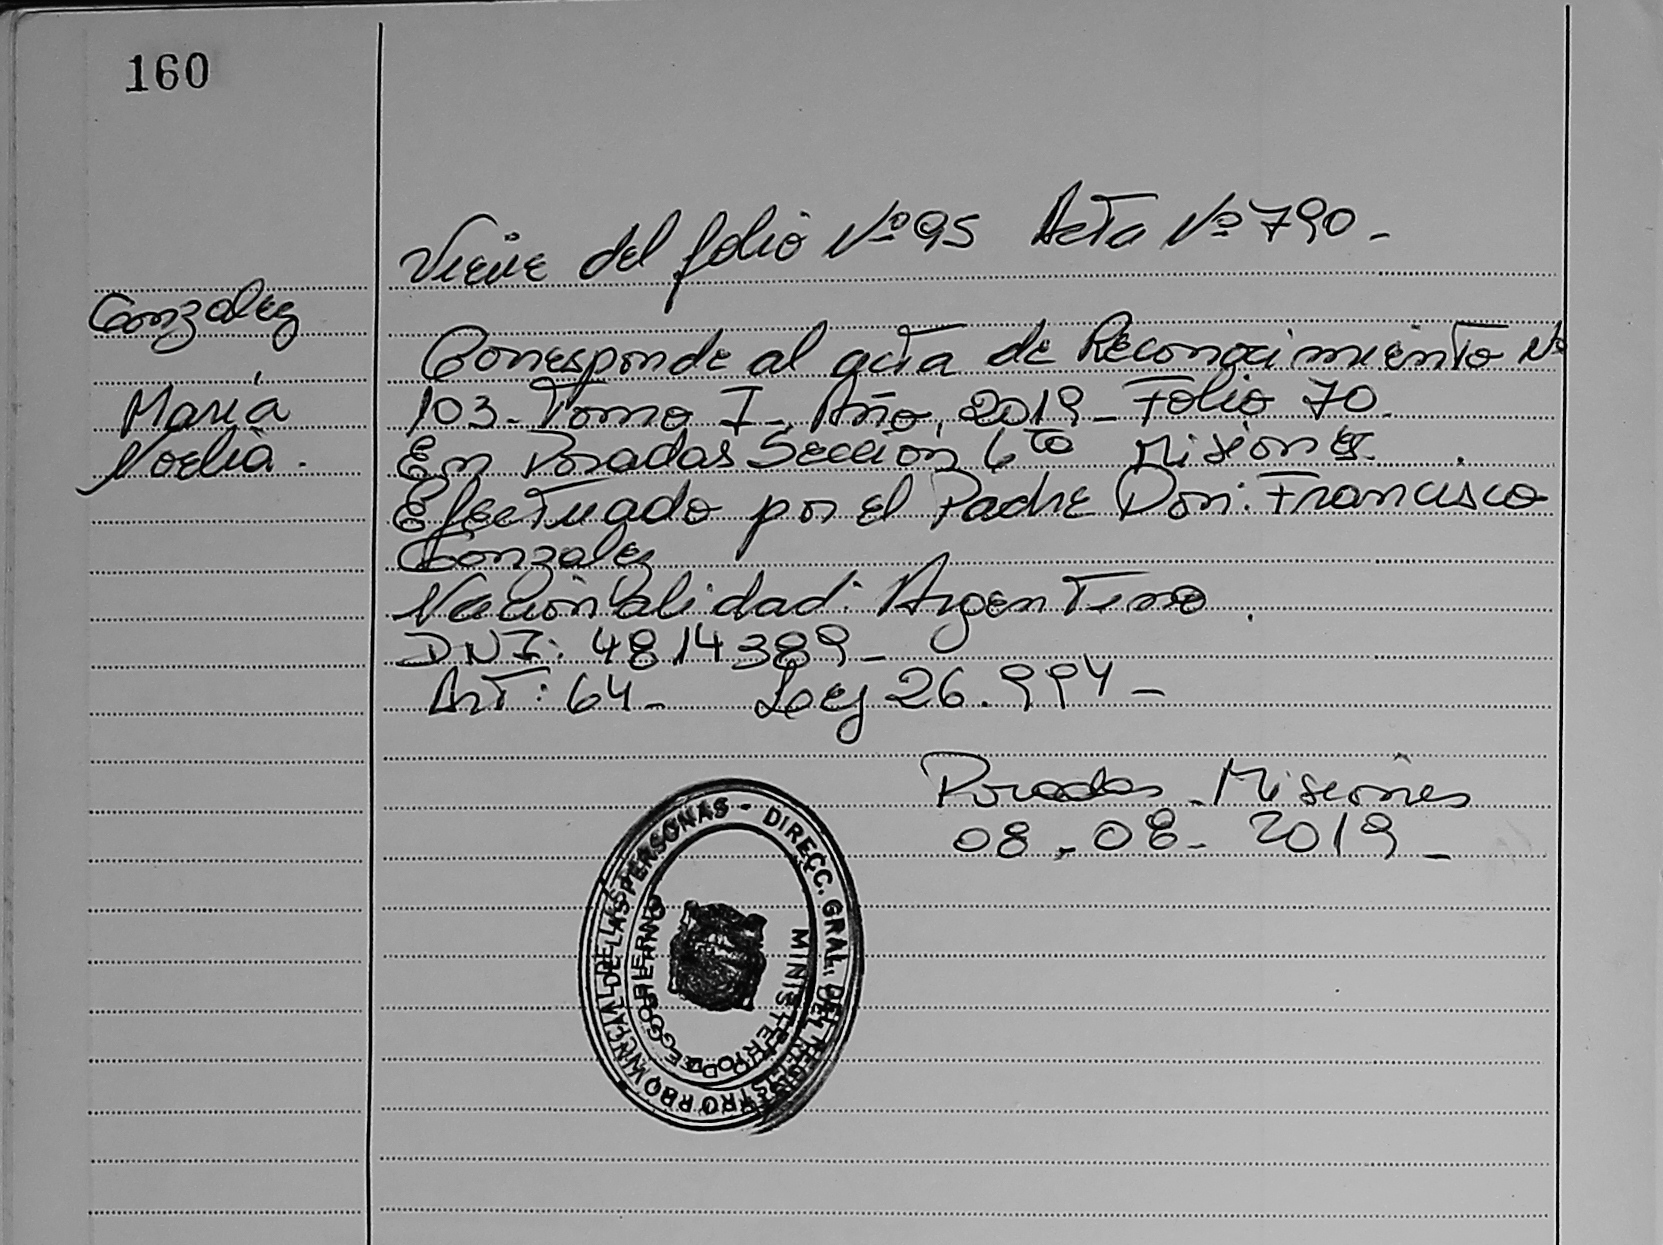 160
Viene del folio Nº 95 Acta Nº 790.-
Gonzalez
María
Noelia.
Corresponde al acta de Reconocimiento Nº
103- Tomo I- Año, 2019- Folio 70.
En Posadas Sección 6ta Misiones.
Efectuado por el Padre Don: Francisco
Gonzalez
Nacionalidad: Argentino.
DNI: 4814389-
Art: 64- Ley 26.994-
Posadas Misiones
08.08-2019-
DIRECC. GRAL. DEL REGISTRO PROVINCIAL DE LAS PERSONAS -
MINISTERIO DE GOBIERNO